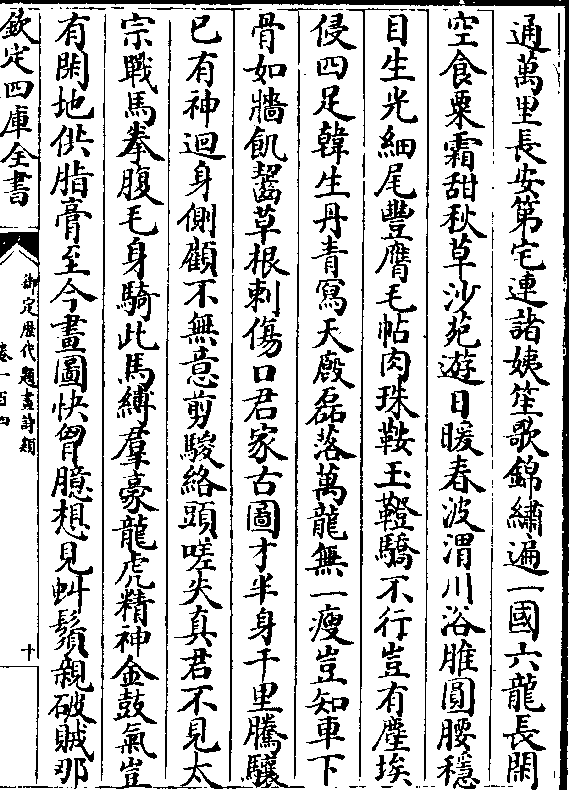 通萬里長安第宅連諸姨笙歌錦繡遍一國六龍長閑
空食粟霜甜秋草沙苑遊日暖春波渭川浴脽圓腰穩
目生光細尾豐膺毛帖肉珠鞍玉鞚驕不行豈有塵埃
侵四足韓生丹青寫天廄磊落萬龍無一瘦豈知車下
骨如牆飢齧草根刺傷口君家古圖才半身千里騰驤
已有神迴身側顧不無意剪騣絡頭嗟失真君不見太
宗戰馬拳腹毛身騎此馬縛羣豪龍虎精神金鼓氣豈
有閑地供脂膏至今畫圖快胷臆想見虯鬚親破賊那
欽定四庫全書
御定歷代題畫詩類
卷一百四
十